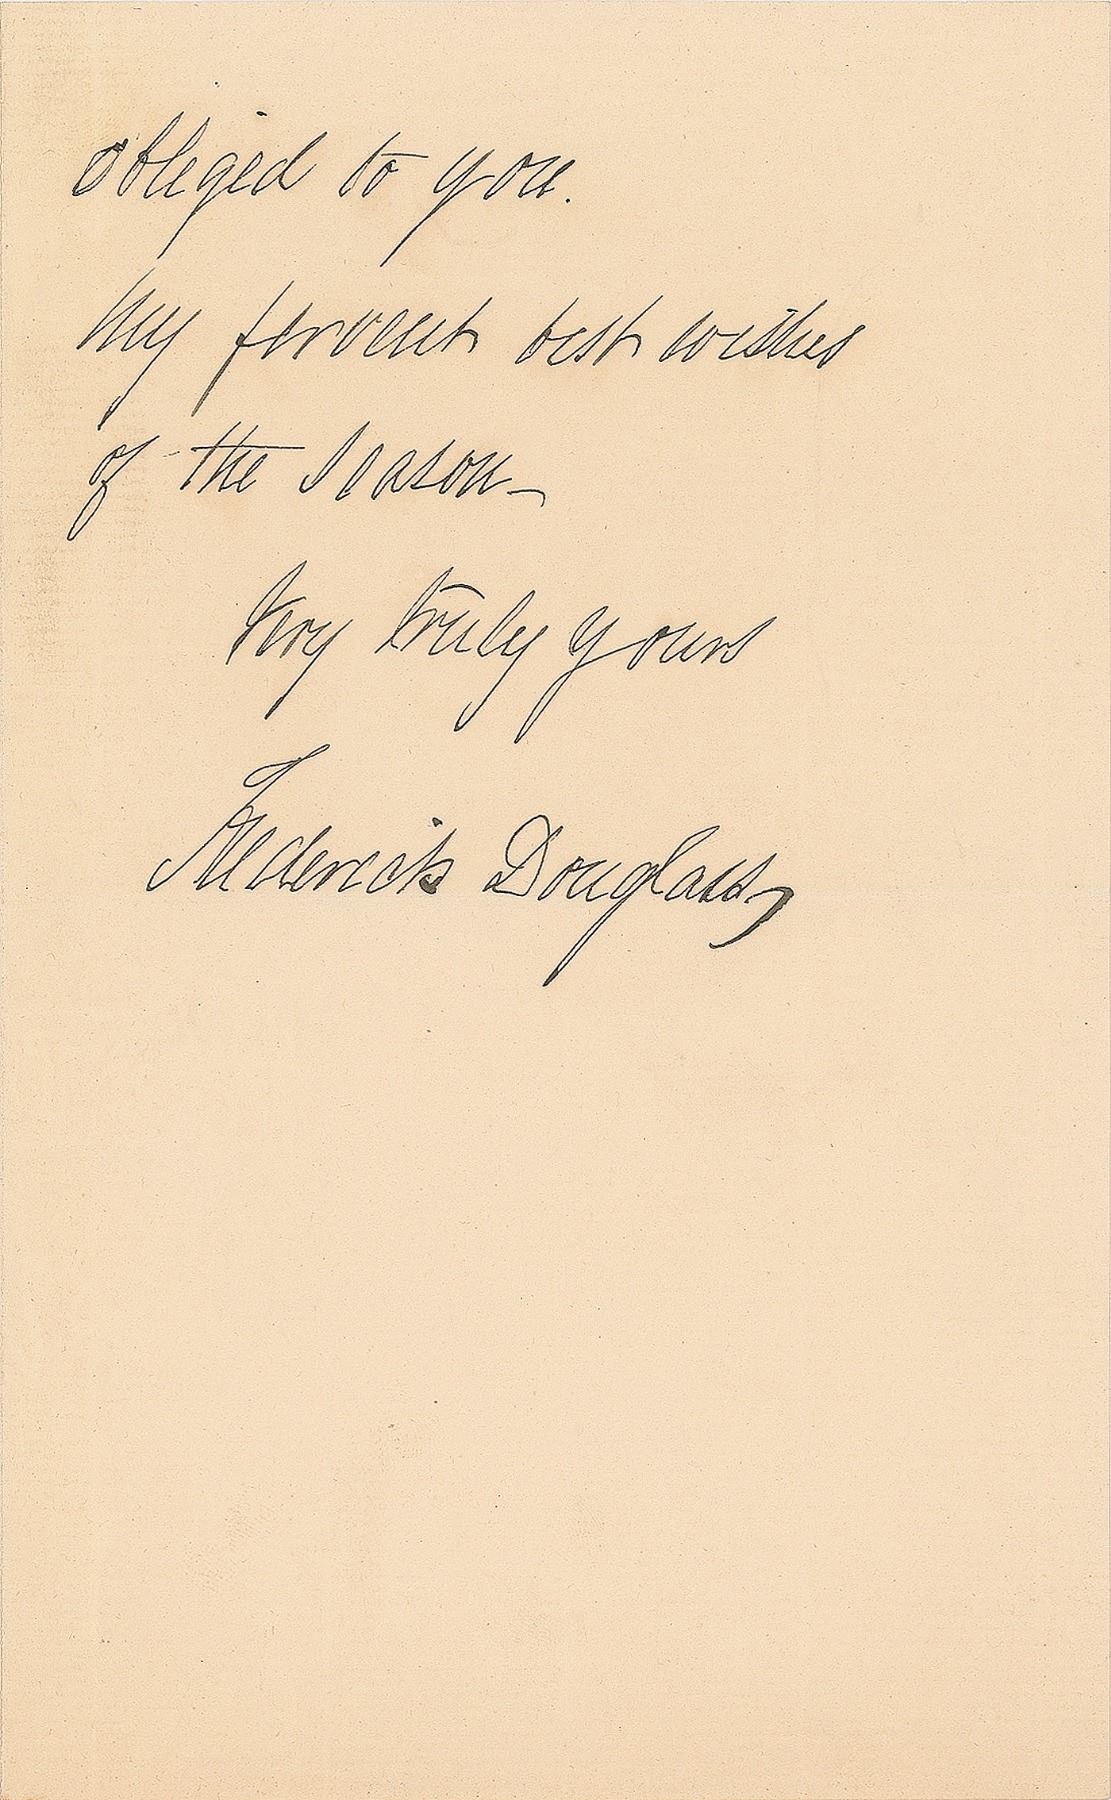 obliged to you.
My fervent best wishes
of the season—
Very truly yours
Frederick Douglass